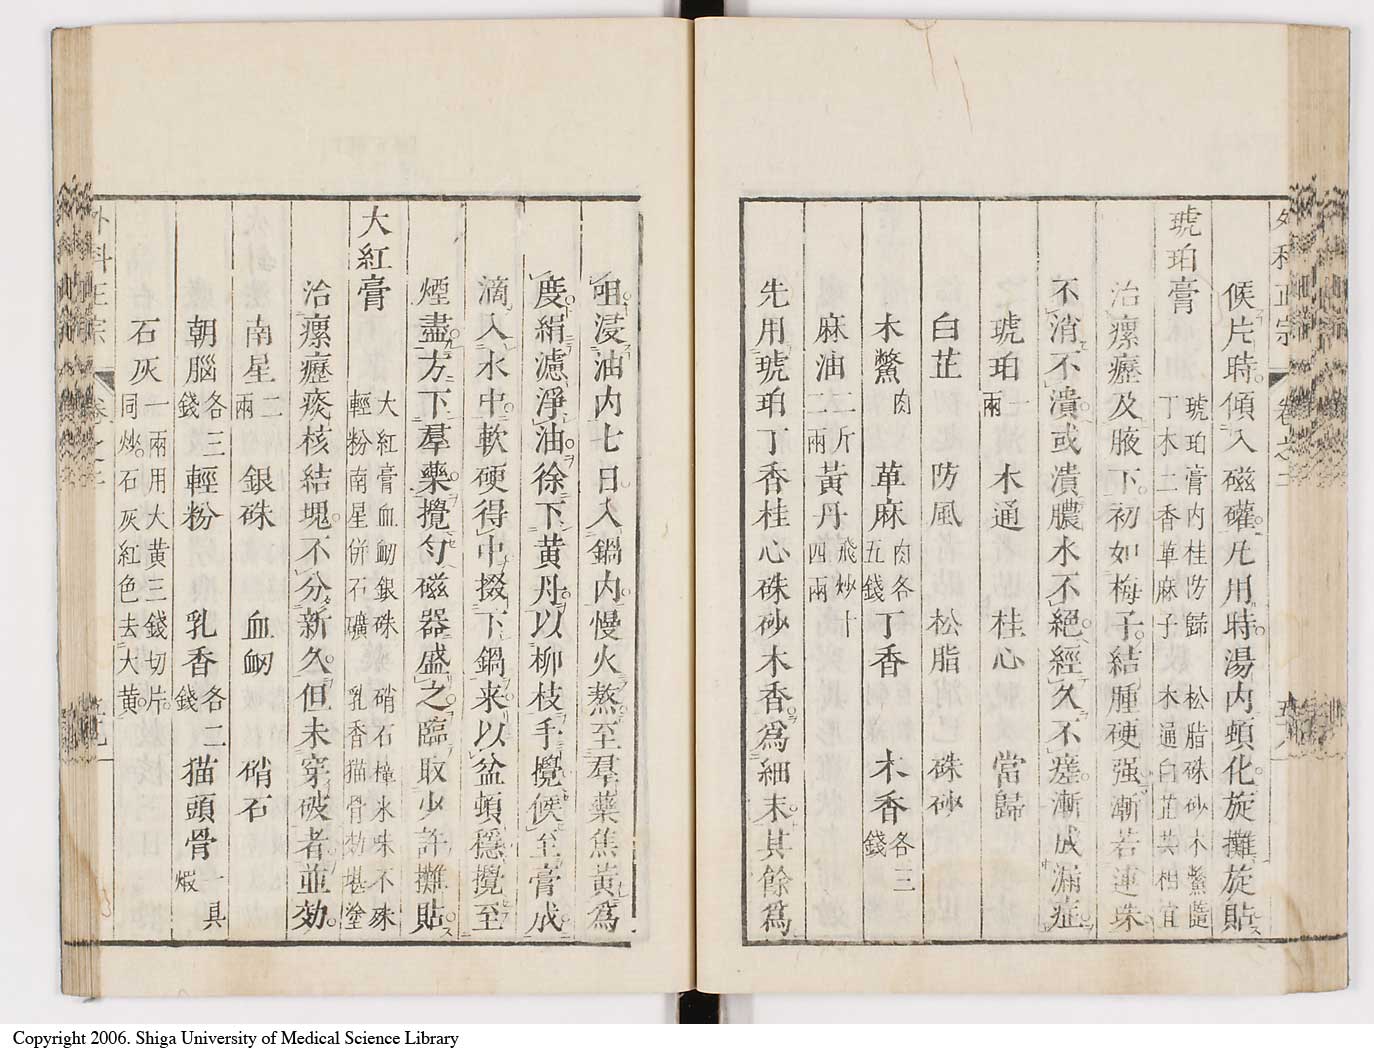 外科正宗 卷之二
候片時傾入磁礶凡用時湯内頓化旋攤旋貼
琥珀膏 琥珀膏内桂防歸 松脂硃砂木鱉隨
丁木二香萆麻子 木通白芷共相宜
治瘰癧及腋下初如梅子結腫硬强漸若連珠
不消不潰或潰膿水不絕經久不瘥漸成漏症
琥珀一兩 木通 桂心 當歸
白芷 防風 松脂 硃砂
木鱉肉 萆麻肉各五錢 丁香 木香各三錢
麻油二斤二兩 黃丹飛炒十四兩
先用琥珀丁香桂心硃砂木香爲細末其餘爲
咀浸油内七日入鍋内慢火熬至羣藥焦黃爲
度絹濾淨油徐下黃丹以柳枝手攪候至膏成
滴入水中軟硬得中掇下鍋来以盆頓穩攪至
煙盡方下羣藥攪勻磁器盛之臨取少許攤貼
大紅膏 大紅膏血衄銀硃 硝石樟氷味不殊
輕粉南星併石礦 乳香猫骨効堪塗
治瘰癧痰核結塊不分新久但未穿破者並効
南星二兩 銀硃 血衄 硝石
朝腦各三錢 輕粉 乳香各二錢 猫頭骨一具煅
石灰一兩用大黃三錢切片
同炒石灰紅色去大黃
外科正宗 卷之二
Copyright 2006. Shiga University of Medical Science Library